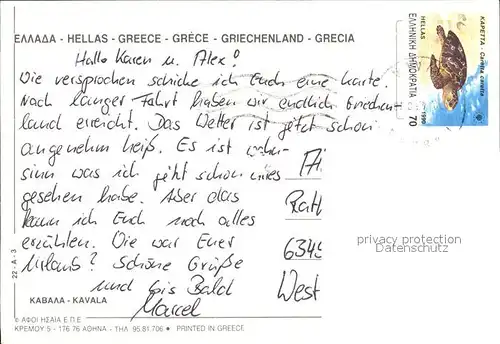 ΕΛΛΑΔΑ - HELLAS - GREECE - GRÈCE - GRIECHENLAND - GRECIA
Hallo Karen u. Alex!
Wie versprochen schicke ich Euch eine Karte.
Nach langer Fahrt haben wir endlich Griechen-
land erreicht. Das Wetter ist jetzt schon
angenehm heiß. Es ist wahn-
sinn was ich jetzt schon alles
gesehen habe. Aber das
kann ich Euch noch alles
erzählen. Wie war Euer
Urlaub? Schöne Grüße
und bis Bald
Marcel
ΚΑΡΕΤΤΑ - Caretta caretta
HELLAS
ΕΛΛΗΝΙΚΗ ΔΗΜΟΚΡΑΤΙΑ
1990
70
Rath
634
West
privacy protection
Datenschutz
22 - A - 3
ΚΑΒΑΛΑ - KAVALA
© ΑΦΟΙ ΗΣΑΪΑ Ε.Π.Ε.
ΚΡΕΜΟΥ 5 - 176 76 ΑΘΗΝΑ - ΤΗΛ. 95.81.706 ● PRINTED IN GREECE